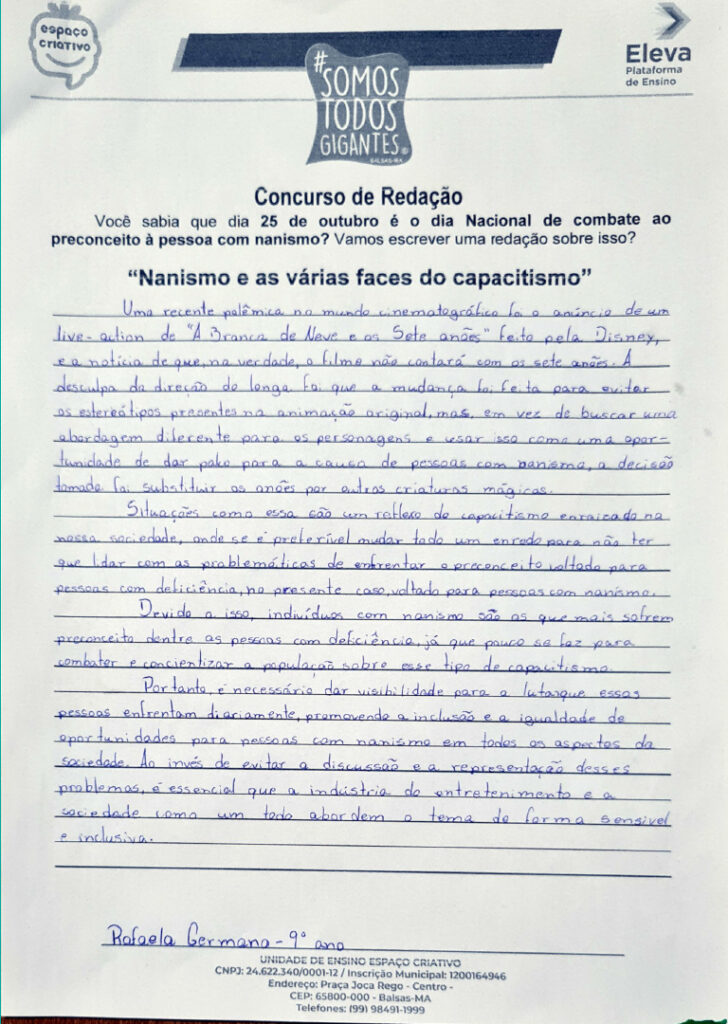 espaço
criativo
Eleva
Plataforma
de Ensino
#SOMOS
TODOS
GIGANTES
BALSAS-MA
Concurso de Redação
Você sabia que dia 25 de outubro é o dia Nacional de combate ao
preconceito à pessoa com nanismo? Vamos escrever uma redação sobre isso?
“Nanismo e as várias faces do capacitismo”
Uma recente polêmica no mundo cinematográfico foi o anúncio de um
live-action de "A Branca de Neve e os Sete anões" feito pela Disney,
e a notícia de que, na verdade, o filme não contará com os sete anões. A
desculpa da direção do longa foi que a mudança foi feita para evitar
os estereótipos presentes na animação original, mas, em vez de buscar uma
abordagem diferente para os personagens e usar isso como uma opor-
tunidade de dar palco para a causa de pessoas com nanismo, a decisão
tomada foi substituir os anões por outras criaturas mágicas.
Situações como essa são um reflexo do capacitismo enraizado na
nossa sociedade, onde se é preferível mudar todo um enredo para não ter
que lidar com as problemáticas de enfrentar o preconceito voltado para
pessoas com deficiência, no presente caso, voltado para pessoas com nanismo.
Devido a isso, indivíduos com nanismo são os que mais sofrem
preconceito dentre as pessoas com deficiência, já que pouco se faz para
combater e concientizar a população sobre esse tipo de capacitismo.
Portanto, é necessário dar visibilidade para a luta que essas
pessoas enfrentam diariamente, promovendo a inclusão e a igualdade de
oportunidades para pessoas com nanismo em todos os aspectos da
sociedade. Ao invés de evitar a discussão e a representação desses
problemas, é essencial que a indústria do entretenimento e a
sociedade como um todo abordem o tema de forma sensível
e inclusiva.
Rafaela Germano - 9° ano
UNIDADE DE ENSINO ESPAÇO CRIATIVO
CNPJ: 24.622.340/0001-12 / Inscrição Municipal: 1200164946
Endereço: Praça Joca Rego - Centro -
CEP: 65800-000 - Balsas-MA
Telefones: (99) 98491-1999